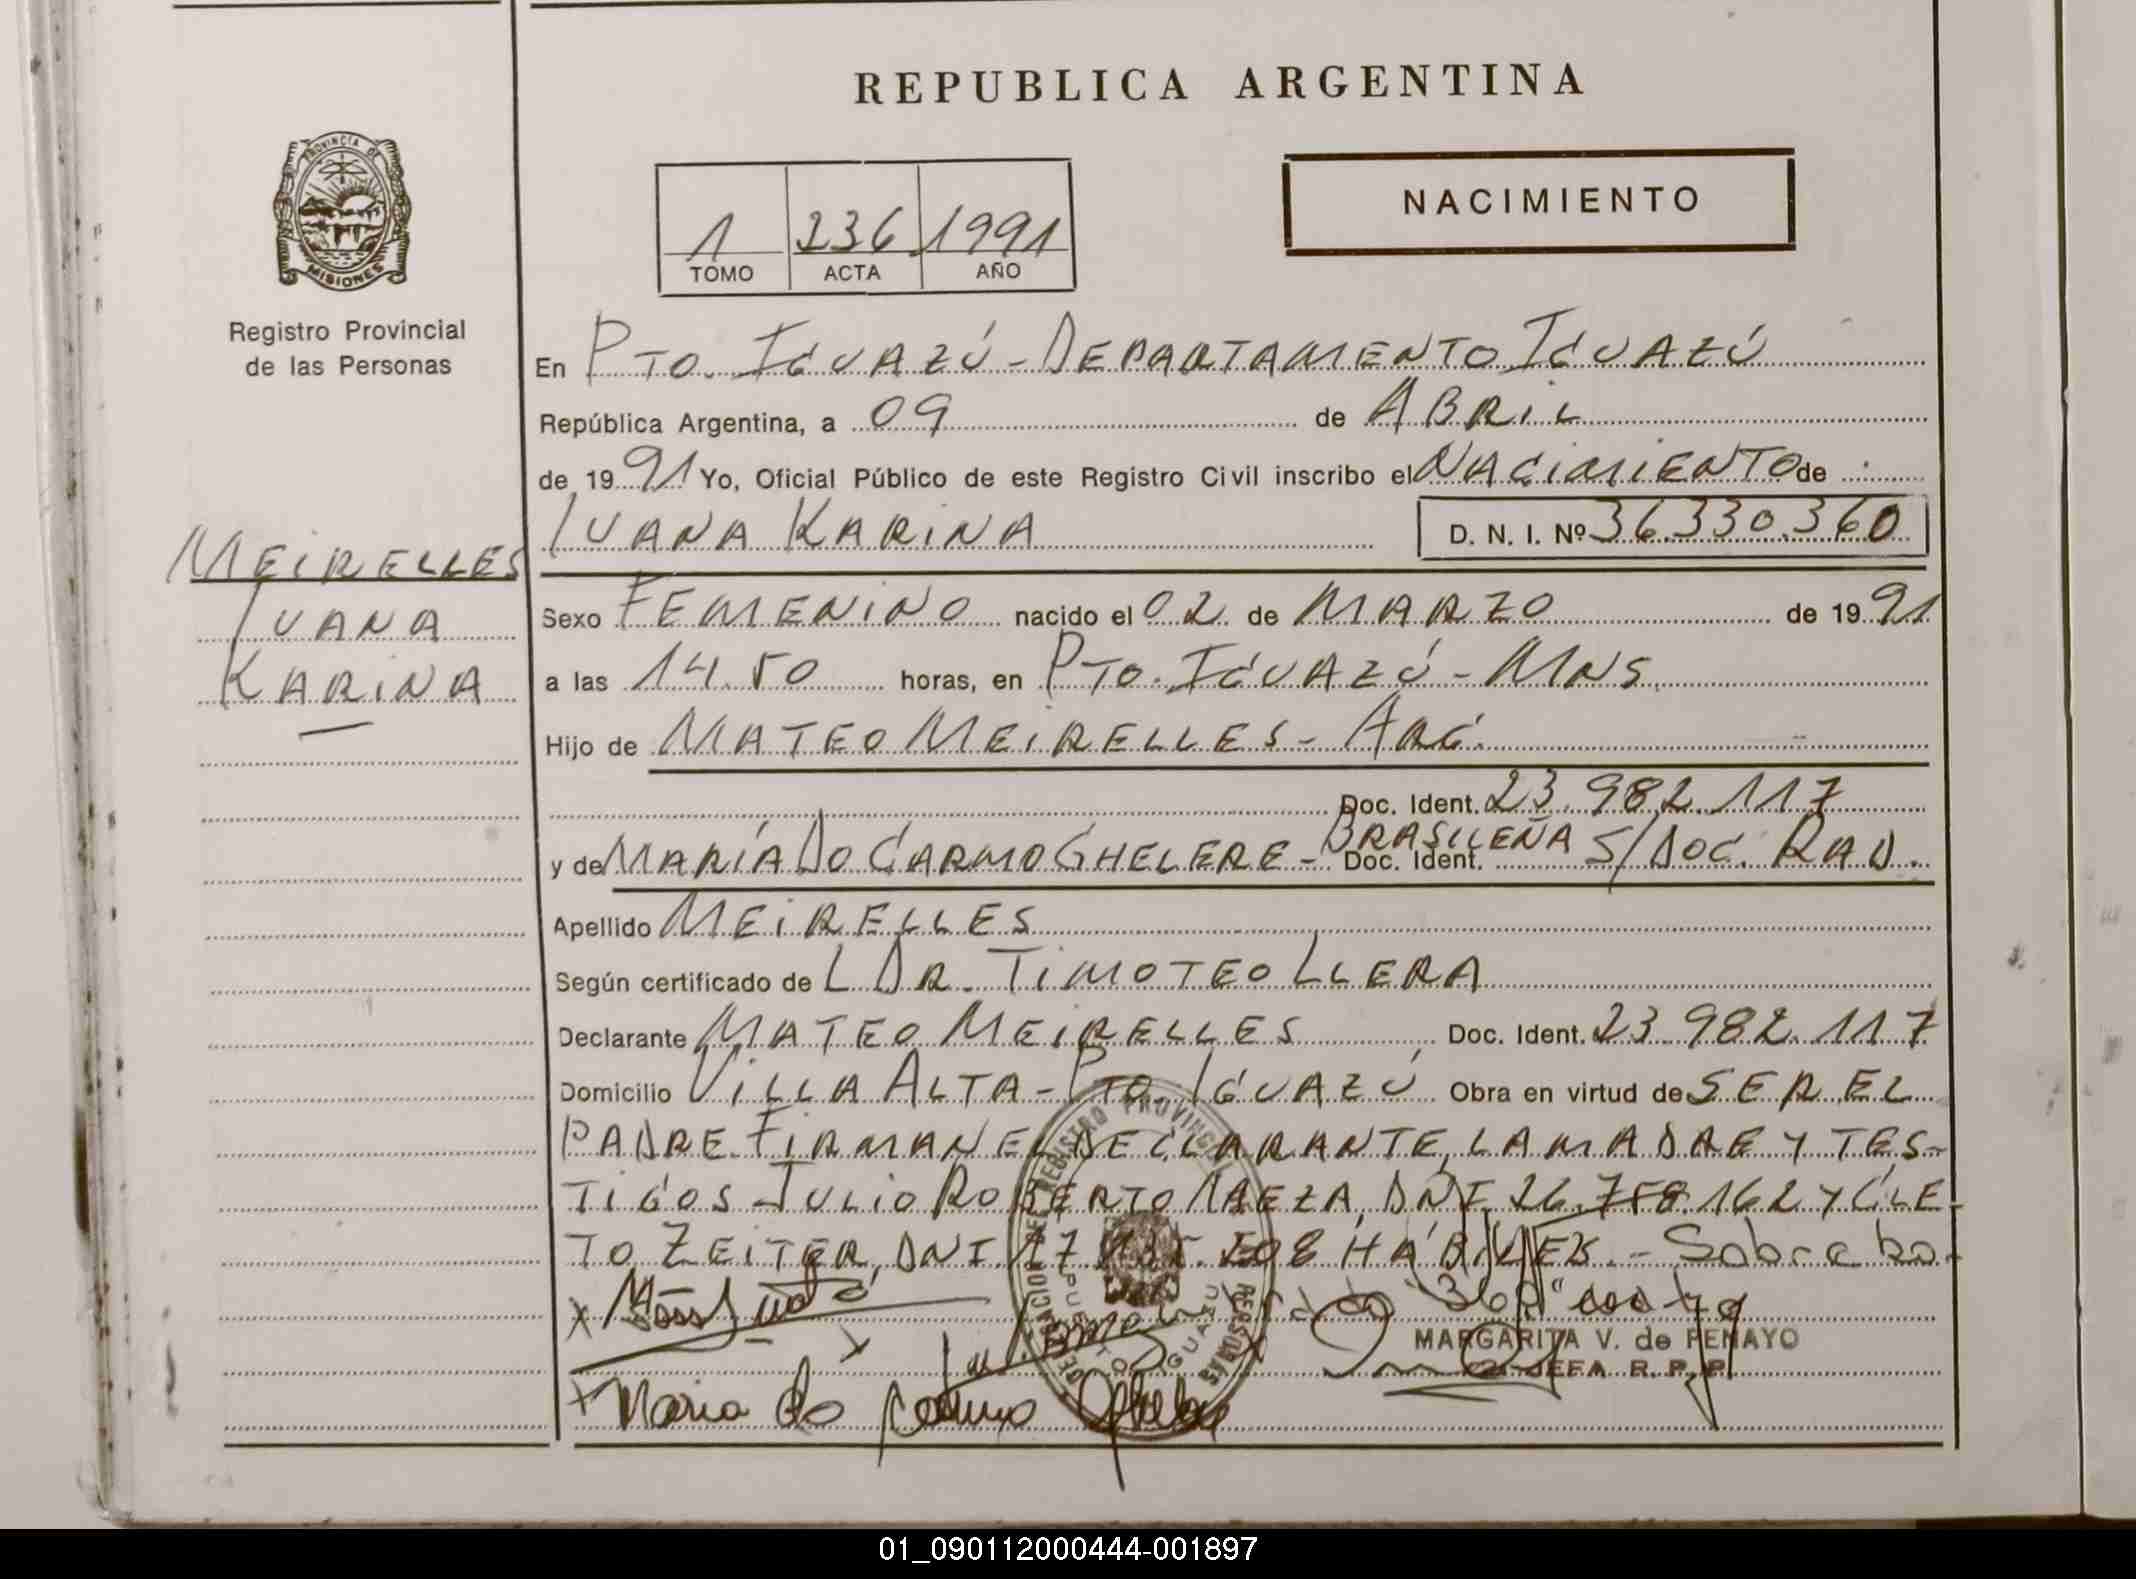 REPUBLICA ARGENTINA
NACIMIENTO
1 236 1991
TOMO ACTA AÑO
PROVINCIA DE
MISIONES
Registro Provincial
de las Personas
En PTO. IGUAZÚ - DEPARTAMENTO IGUAZÚ
República Argentina, a 09 de ABRIL
de 1991 Yo, Oficial Público de este Registro Civil inscribo el NACIMIENTO de :
IVANA KARINA D. N. I. Nº 36.330.360
MEIRELLES
IVANA
KARINA
Sexo FEMENINO nacido el 02 de MARZO de 1991
a las 14.50 horas, en PTO. IGUAZÚ - MNS.
Hijo de MATEO MEIRELLES - ARG.
Doc. Ident. 23.982.117
y de MARÍA DO CARMO GHELERE - BRASILEÑA Doc. Ident. S/DOC. RAD.
Apellido MEIRELLES
Según certificado de L DR. TIMOTEO LLERA
Declarante MATEO MEIRELLES, Doc. Ident. 23.982.117
Domicilio VILLA ALTA - PTO. IGUAZÚ Obra en virtud de SER EL
PADRE. FIRMAN EL DECLARANTE, LA MADRE Y TES-
TIGOS JULIO ROBERTO MAEZA, DNI 26.758.162 Y CLE-
TO ZEITER, DNI 17. HÁBILES. - Sobre bo-
rrado "360"
MARGARITA V. de PENAYO
JEFA R. P. P.
Maria do Carmo
REGISTRO PROVINCIAL
PERSONAS
PUERTO IGUAZU
01_090112000444-001897